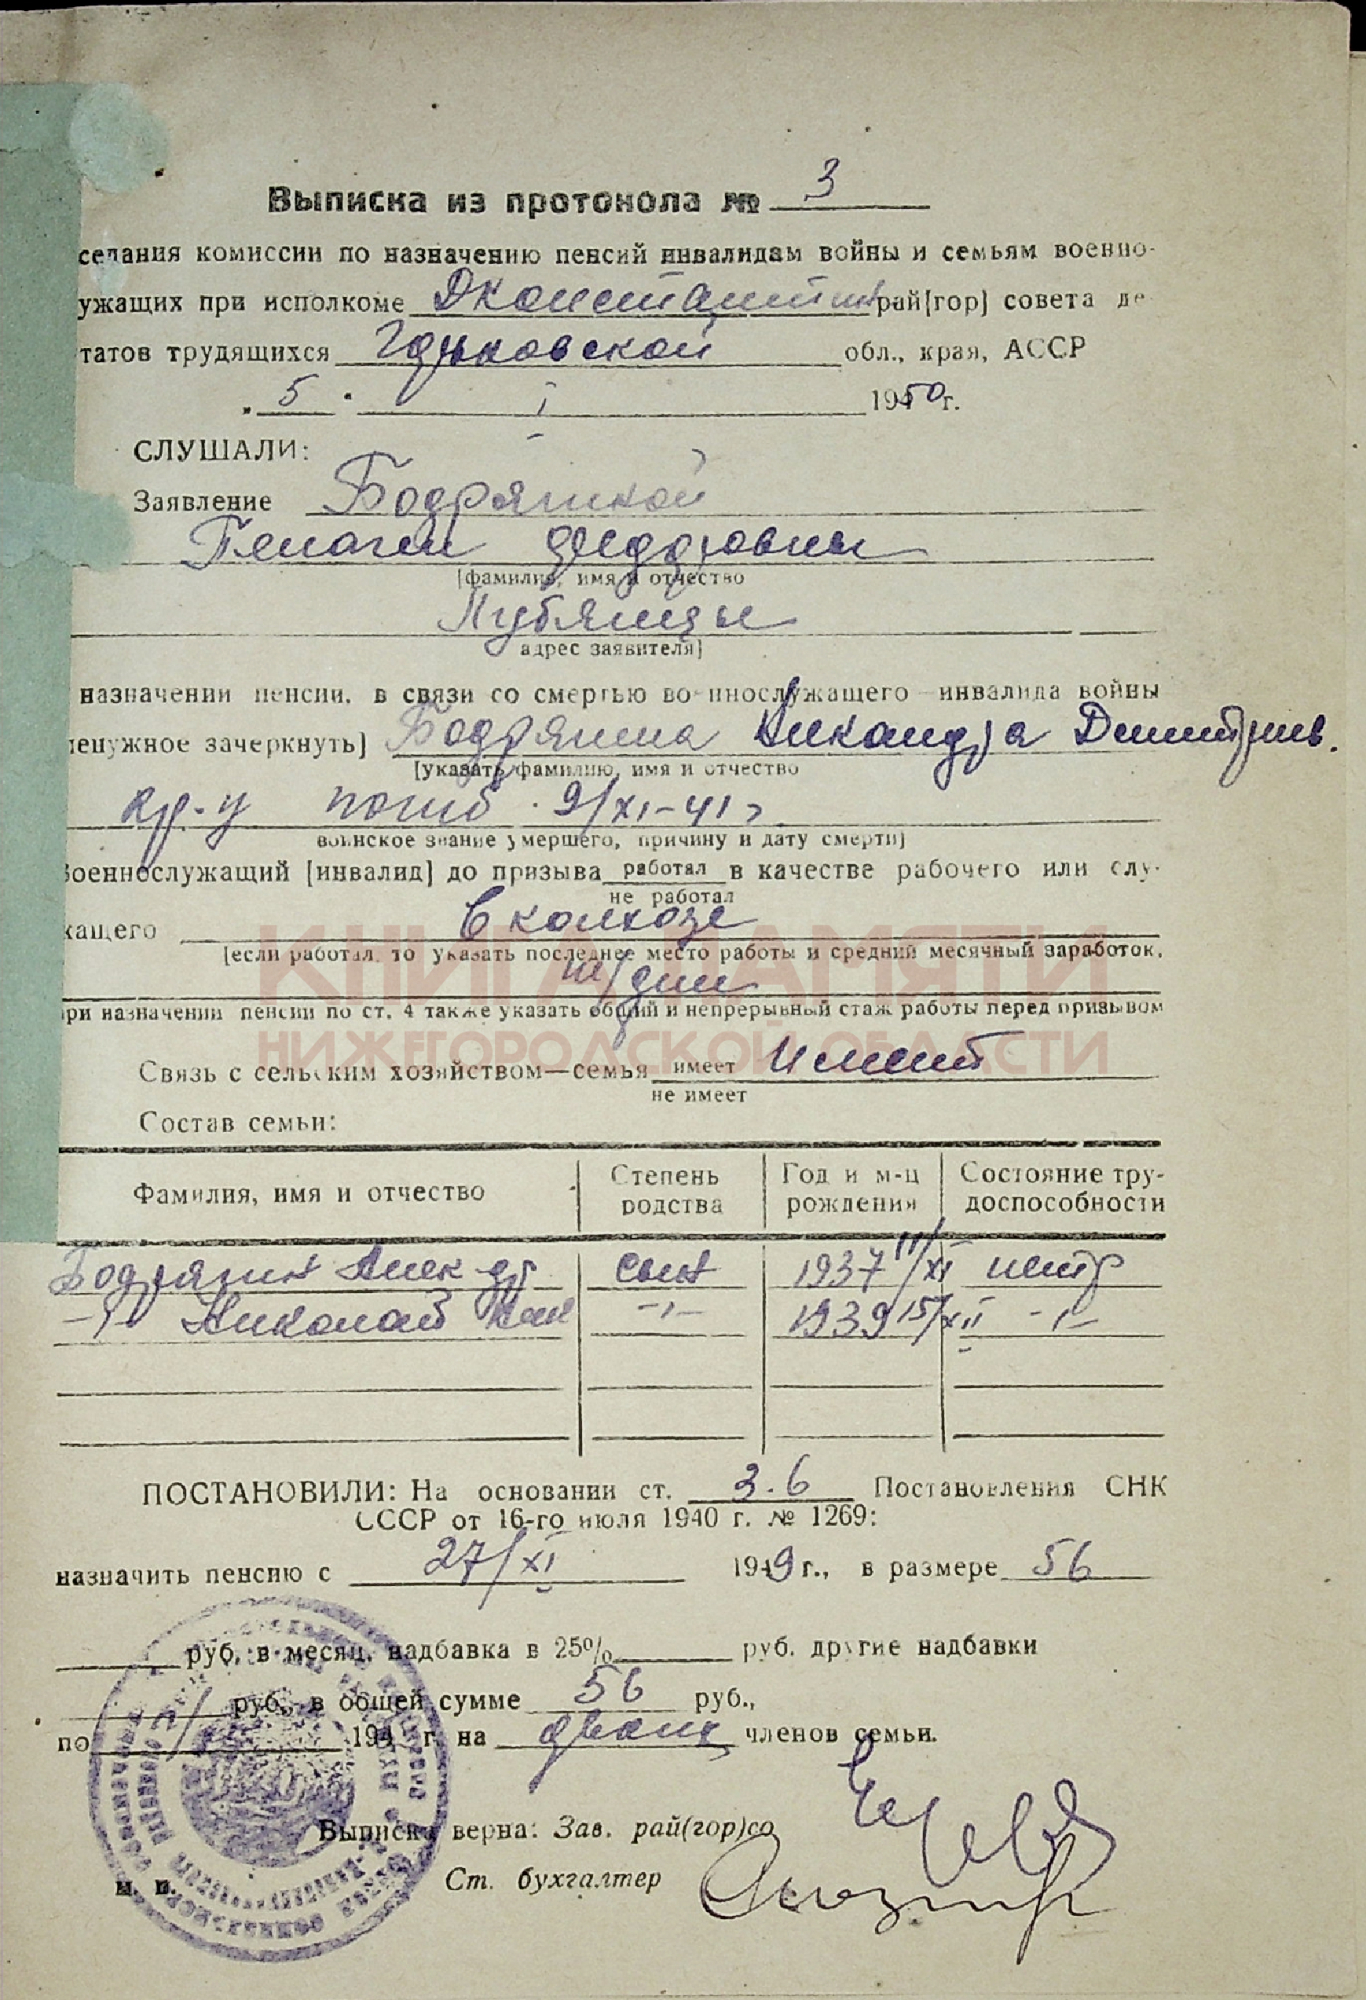 Выписка из протокола № 3
седания комиссии по назначению пенсий инвалидам войны и семьям военно-
ужащих при исполкоме Дконстантин рай(гор) совета де-
татов трудящихся Горьковской обл., края, АССР
„ 5 " I 1950 г.
СЛУШАЛИ:
Заявление Бодрягиной
Пелагеи Федоровны
(фамилия, имя и отчество
Лубянцы
адрес заявителя)
назначении пенсии, в связи со смертью военнослужащего — инвалида войны
ненужное зачеркнуть) Бодрягина Никандра Дмитриев.
(указать фамилию, имя и отчество
кр-ц погиб 9/XI-41г
воинское звание умершего, причину и дату смерти)
Военнослужащий (инвалид) до призыва работал в качестве рабочего или слу-
не работал
жащего в колхозе
(если работал, то указать последнее место работы и средний месячный заработок,
дни
при назначении пенсии по ст. 4 также указать общий и непрерывный стаж работы перед призывом
КНИГА ПАМЯТИ
НИЖЕГОРОДСКОЙ ОБЛАСТИ
Связь с сельским хозяйством—семья имеет имеет
не имеет
Состав семьи:
Фамилия, имя и отчество Степень родства Год и м-ц рождения Состояние тру-доспособности
Бодрягин Алек-др сын 1937 11/XI нетр
-"- Николай Ник -"- 1939 15/XII -"-
ПОСТАНОВИЛИ: На основании ст. 3.6 Постановления СНК
СССР от 16-го июля 1940 г. № 1269:
назначить пенсию с 27/XI 1949 г., в размере 56
руб. в месяц, надбавка в 25% руб. другие надбавки
руб., в общей сумме 56 руб.,
по 194 г. на двоих членов семьи.
Выписка верна: Зав. рай(гор)со
м. п. Ст. бухгалтер